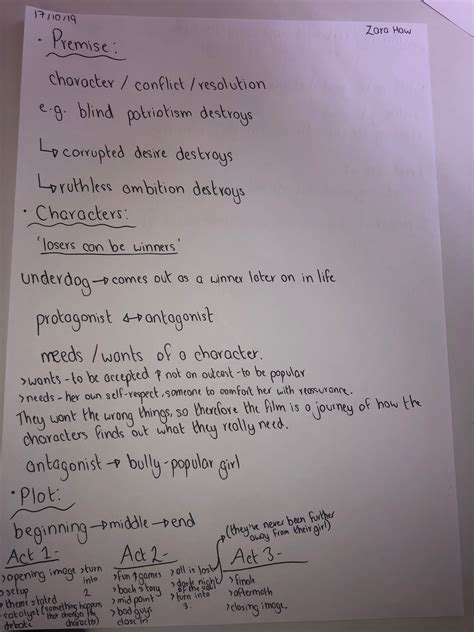 17/10/19
Zara Haw
• Premise:
character / conflict / resolution
e.g. blind patriotism destroys
↳ corrupted desire destroys
↳ ruthless ambition destroys
• Characters:
'losers can be winners'
underdog → comes out as a winner later on in life
protagonist ↔ antagonist
needs / wants of a character.
> wants - to be accepted & not an outcast - to be popular
> needs - her own self-respect, someone to comfort her with reassurance.
They want the wrong things, so therefore the film is a journey of how the
characters finds out what they really need.
antagonist → bully - popular girl
• Plot:
beginning → middle → end
(they've never been further
away from their girl)
Act 1 -
> opening image
> setup
> theme stated
> catalyst (something happens
that changes the
character)
debate
> turn
into
2
Act 2 -
> fun & games
> back story
> mid point
> bad guys
close in
> all is lost
> dark night
of the soul
> turn into
3.
Act 3 -
> finale
> aftermath
> closing image.